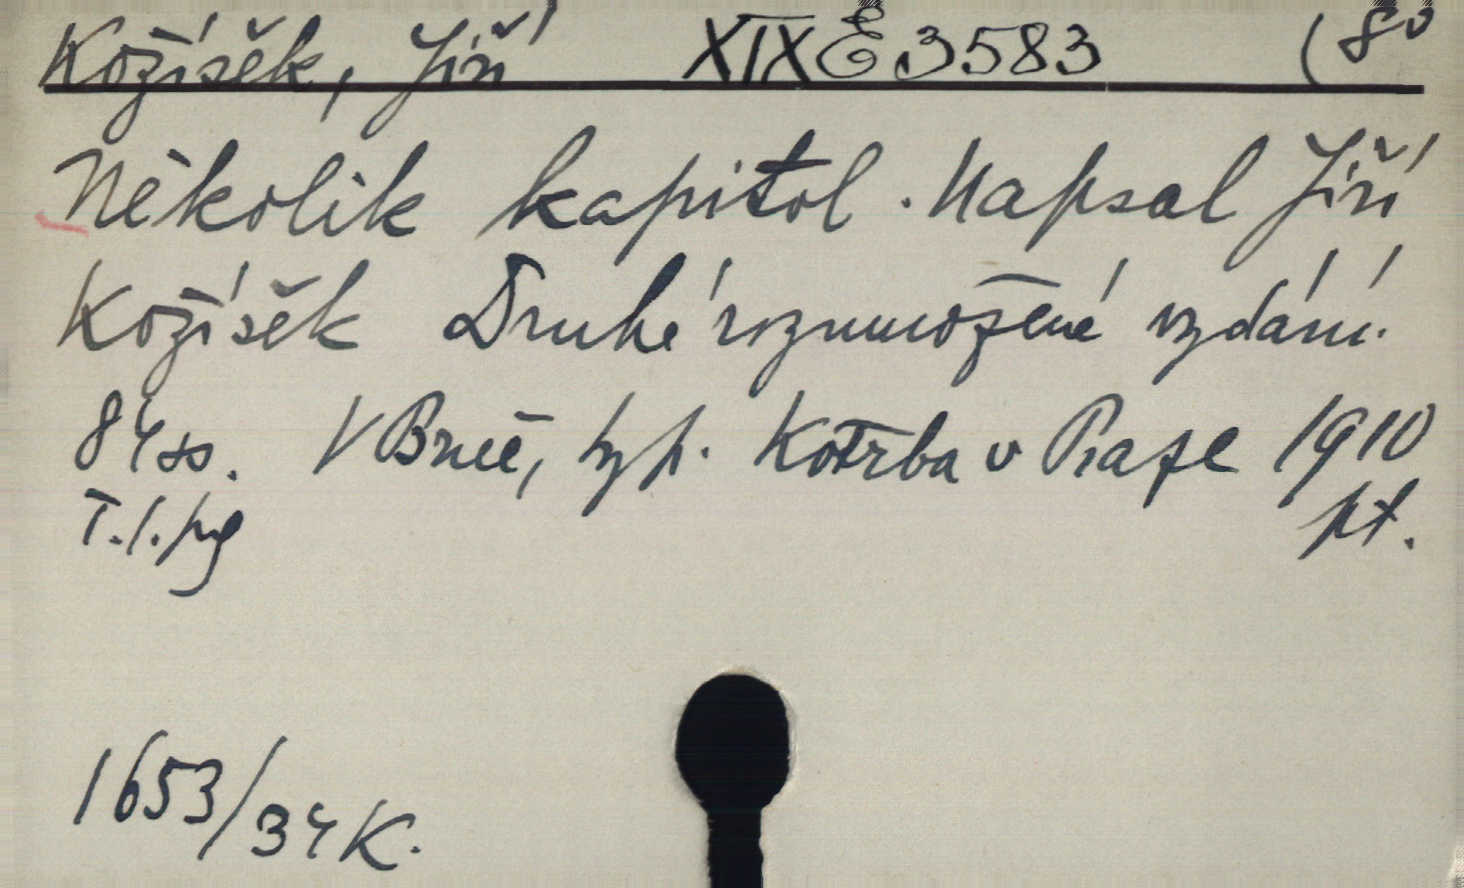 Kožíšěk, Jiří XIX E 3583 (8°
Několik kapitol. Napsal Jiří
Kožíšěk Druhé rozmnožené vydání.
84 ss. V Brně, typ. Kotrba v Praze 1910
T.I.
pt.
1653/34 K.